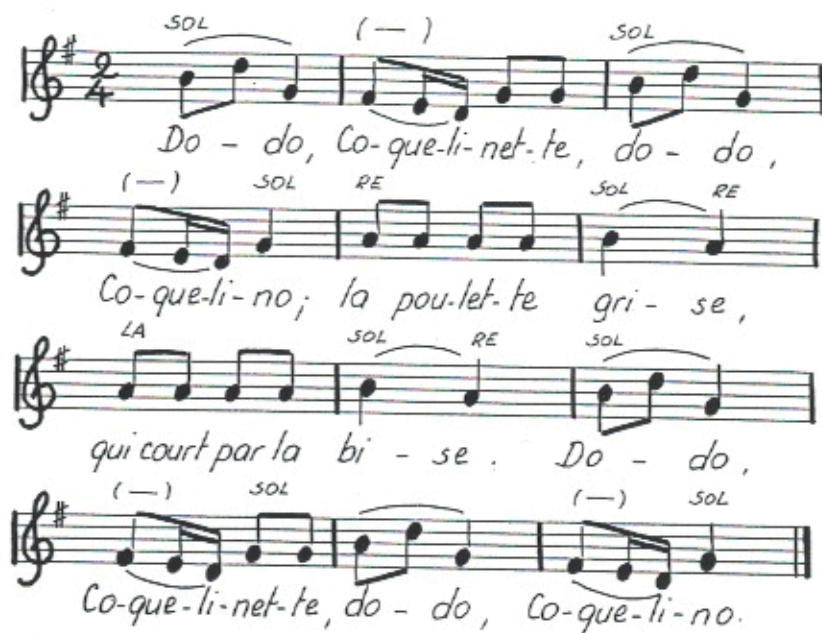 SOL (—) SOL
2
4
Do - do, Co-que-li-net-te, do - do,
(—) SOL RE SOL RE
Co-que-li-no; la pou-let-te gri - se,
LA SOL RE SOL
qui court par la bi - se. Do - do,
(—) SOL (—) SOL
Co-que-li-net-te, do - do, Co-que-li-no.